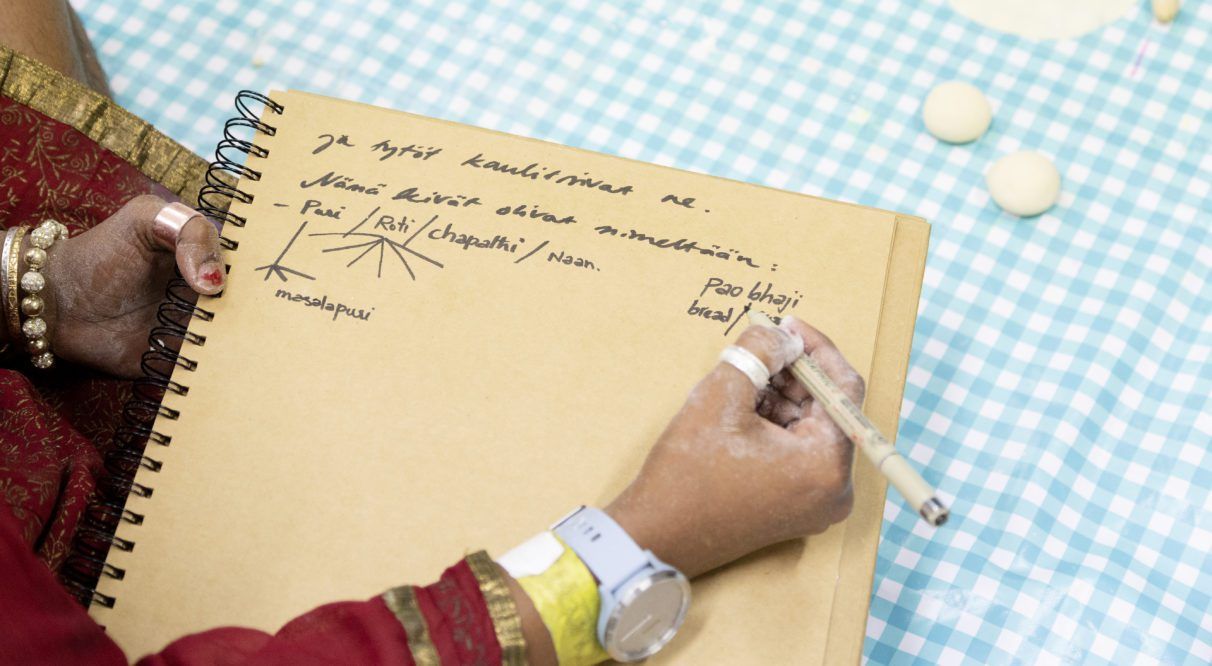 ja tytöt kaulitsivat ne.
Nämä leivät olivat nimeltään:
- Puri / Roti / chapathi / Naan.
masalapuri
Pao bhaji
bread /